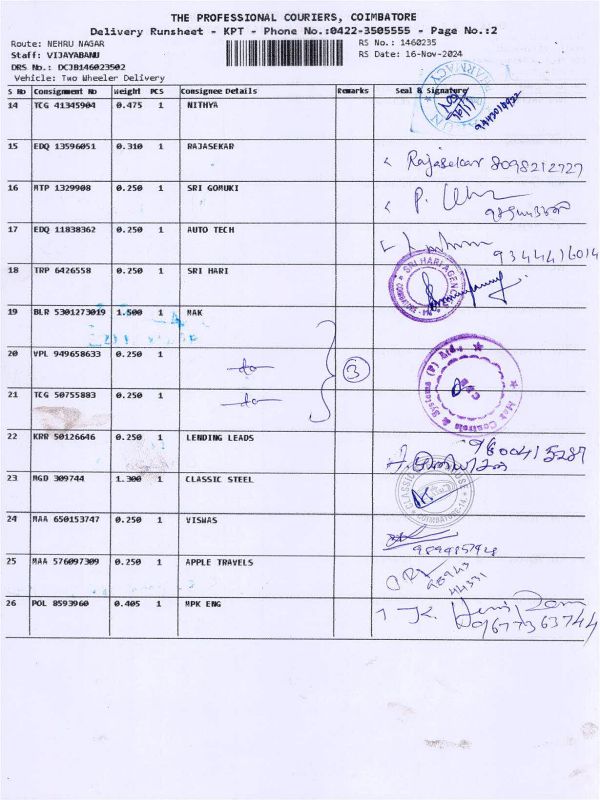 THE PROFESSIONAL COURIERS, COIMBATORE
Delivery Runsheet - KPT - Phone No.:0422-3505555 - Page No.:2
Route: NEHRU NAGAR RS No.: 1460235
Staff: VIJAYABANU RS Date: 16-Nov-2024
DRS No.: DCJB146023502
Vehicle: Two Wheeler Delivery
S No Consignment No Weight PCS Consignee Details Remarks Seal & Signature
14 TCG 41345904 0.475 1 NITHYA
15 EDQ 13596051 0.310 1 RAJASEKAR Rajasekar 8098212727
16 MTP 1329908 0.250 1 SRI GOMUKI P.
17 EDQ 11838362 0.250 1 AUTO TECH 9344416014
18 TRP 6426558 0.250 1 SRI HARI SRI HARI AGENCY
19 BLR 5301273019 1.500 1 MAK
20 VPL 949658633 0.250 1 do 3 Mak Controls & Systems (P) Ltd.,
21 TCG 50755883 0.250 1 do
22 KRR 50126646 0.250 1 LENDING LEADS 9600415287
23 MGD 309744 1.300 1 CLASSIC STEEL CLASSIC COIMBATORE-14
24 MAA 650153747 0.250 1 VISWAS
25 MAA 576097309 0.250 1 APPLE TRAVELS 98943 44371
26 POL 8593960 0.405 1 MPK ENG 9677363744